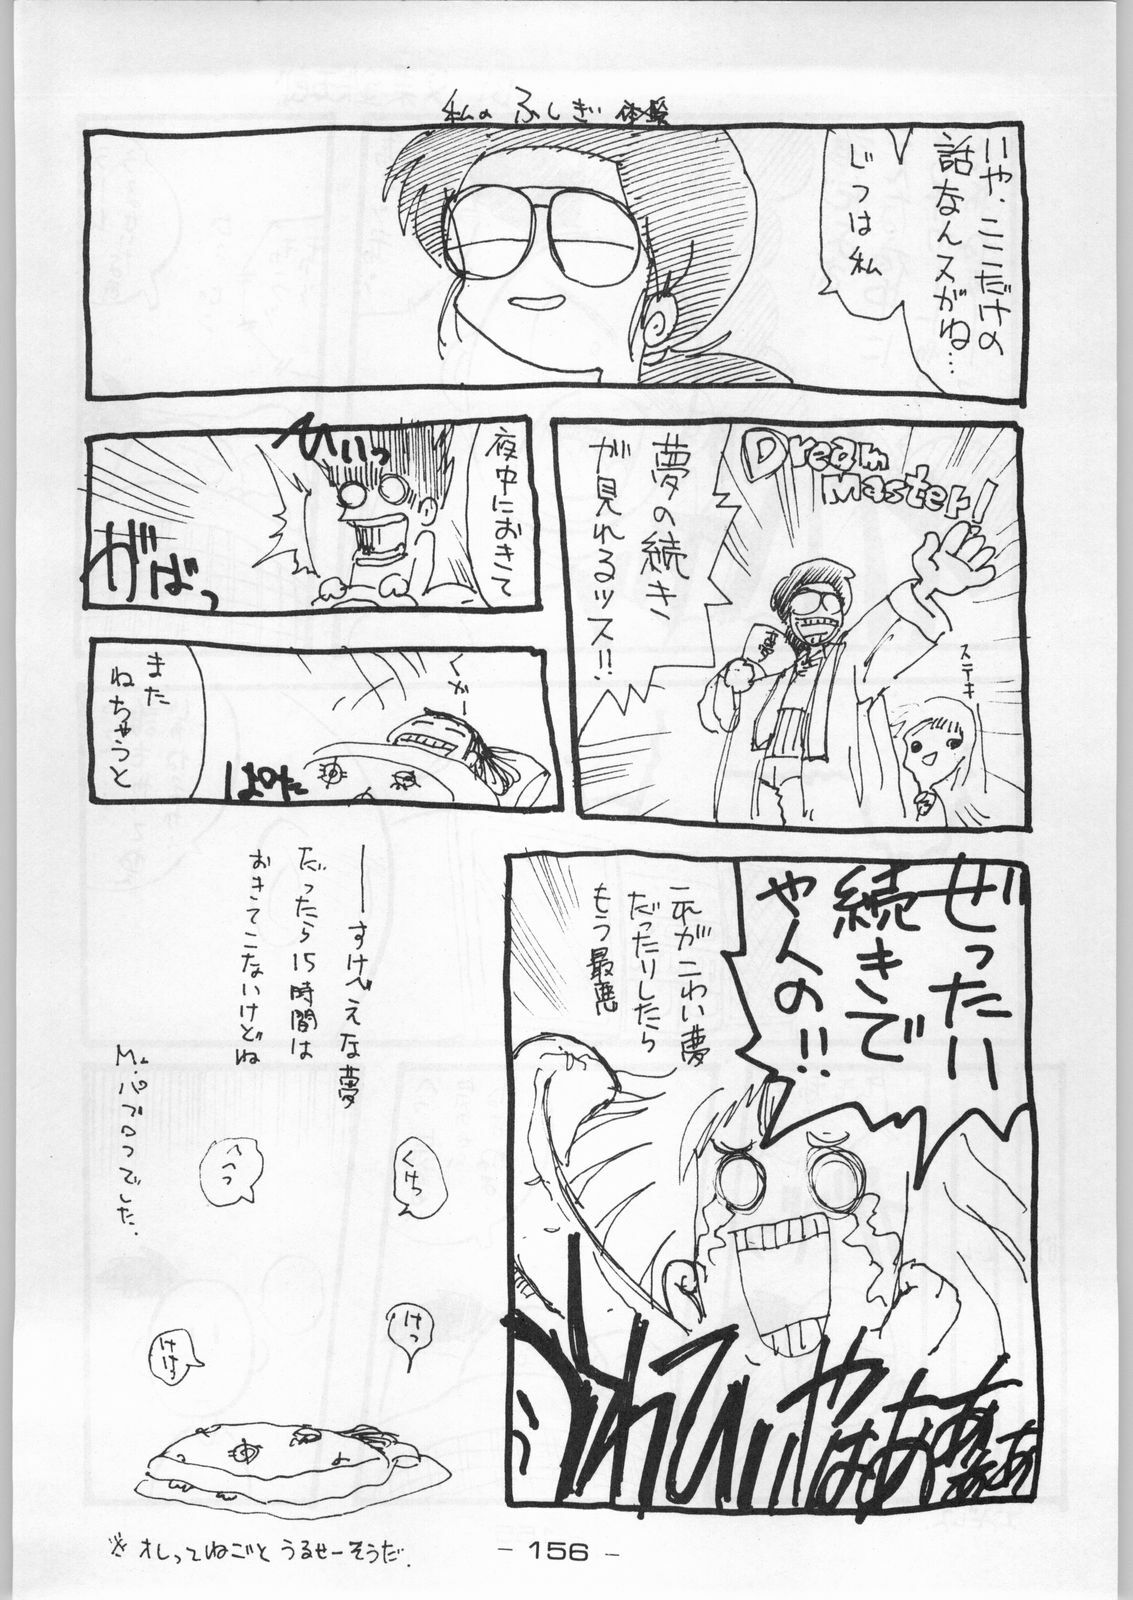 私の ふしぎ 体験
いや、ここだけの
話なんスがね…
じつは私
Dream
Master!
夢の続き
が見れるッス!!
ステキ
夜中におきて
ひいっ
がばっ
くかー
また
ねちゃうと
ぱたっ
ぜったい
続きで
やんの!!
これがこわい夢
だったりしたら
もう最悪
うわひいやはああああ
──すけべえな夢
だったら15時間は
おきてこないけどね
Mr.パブロってでした.
くけっ
へっっ
けっ
けけっ
※オレってねごと うるせーそうだ.
- 156 -